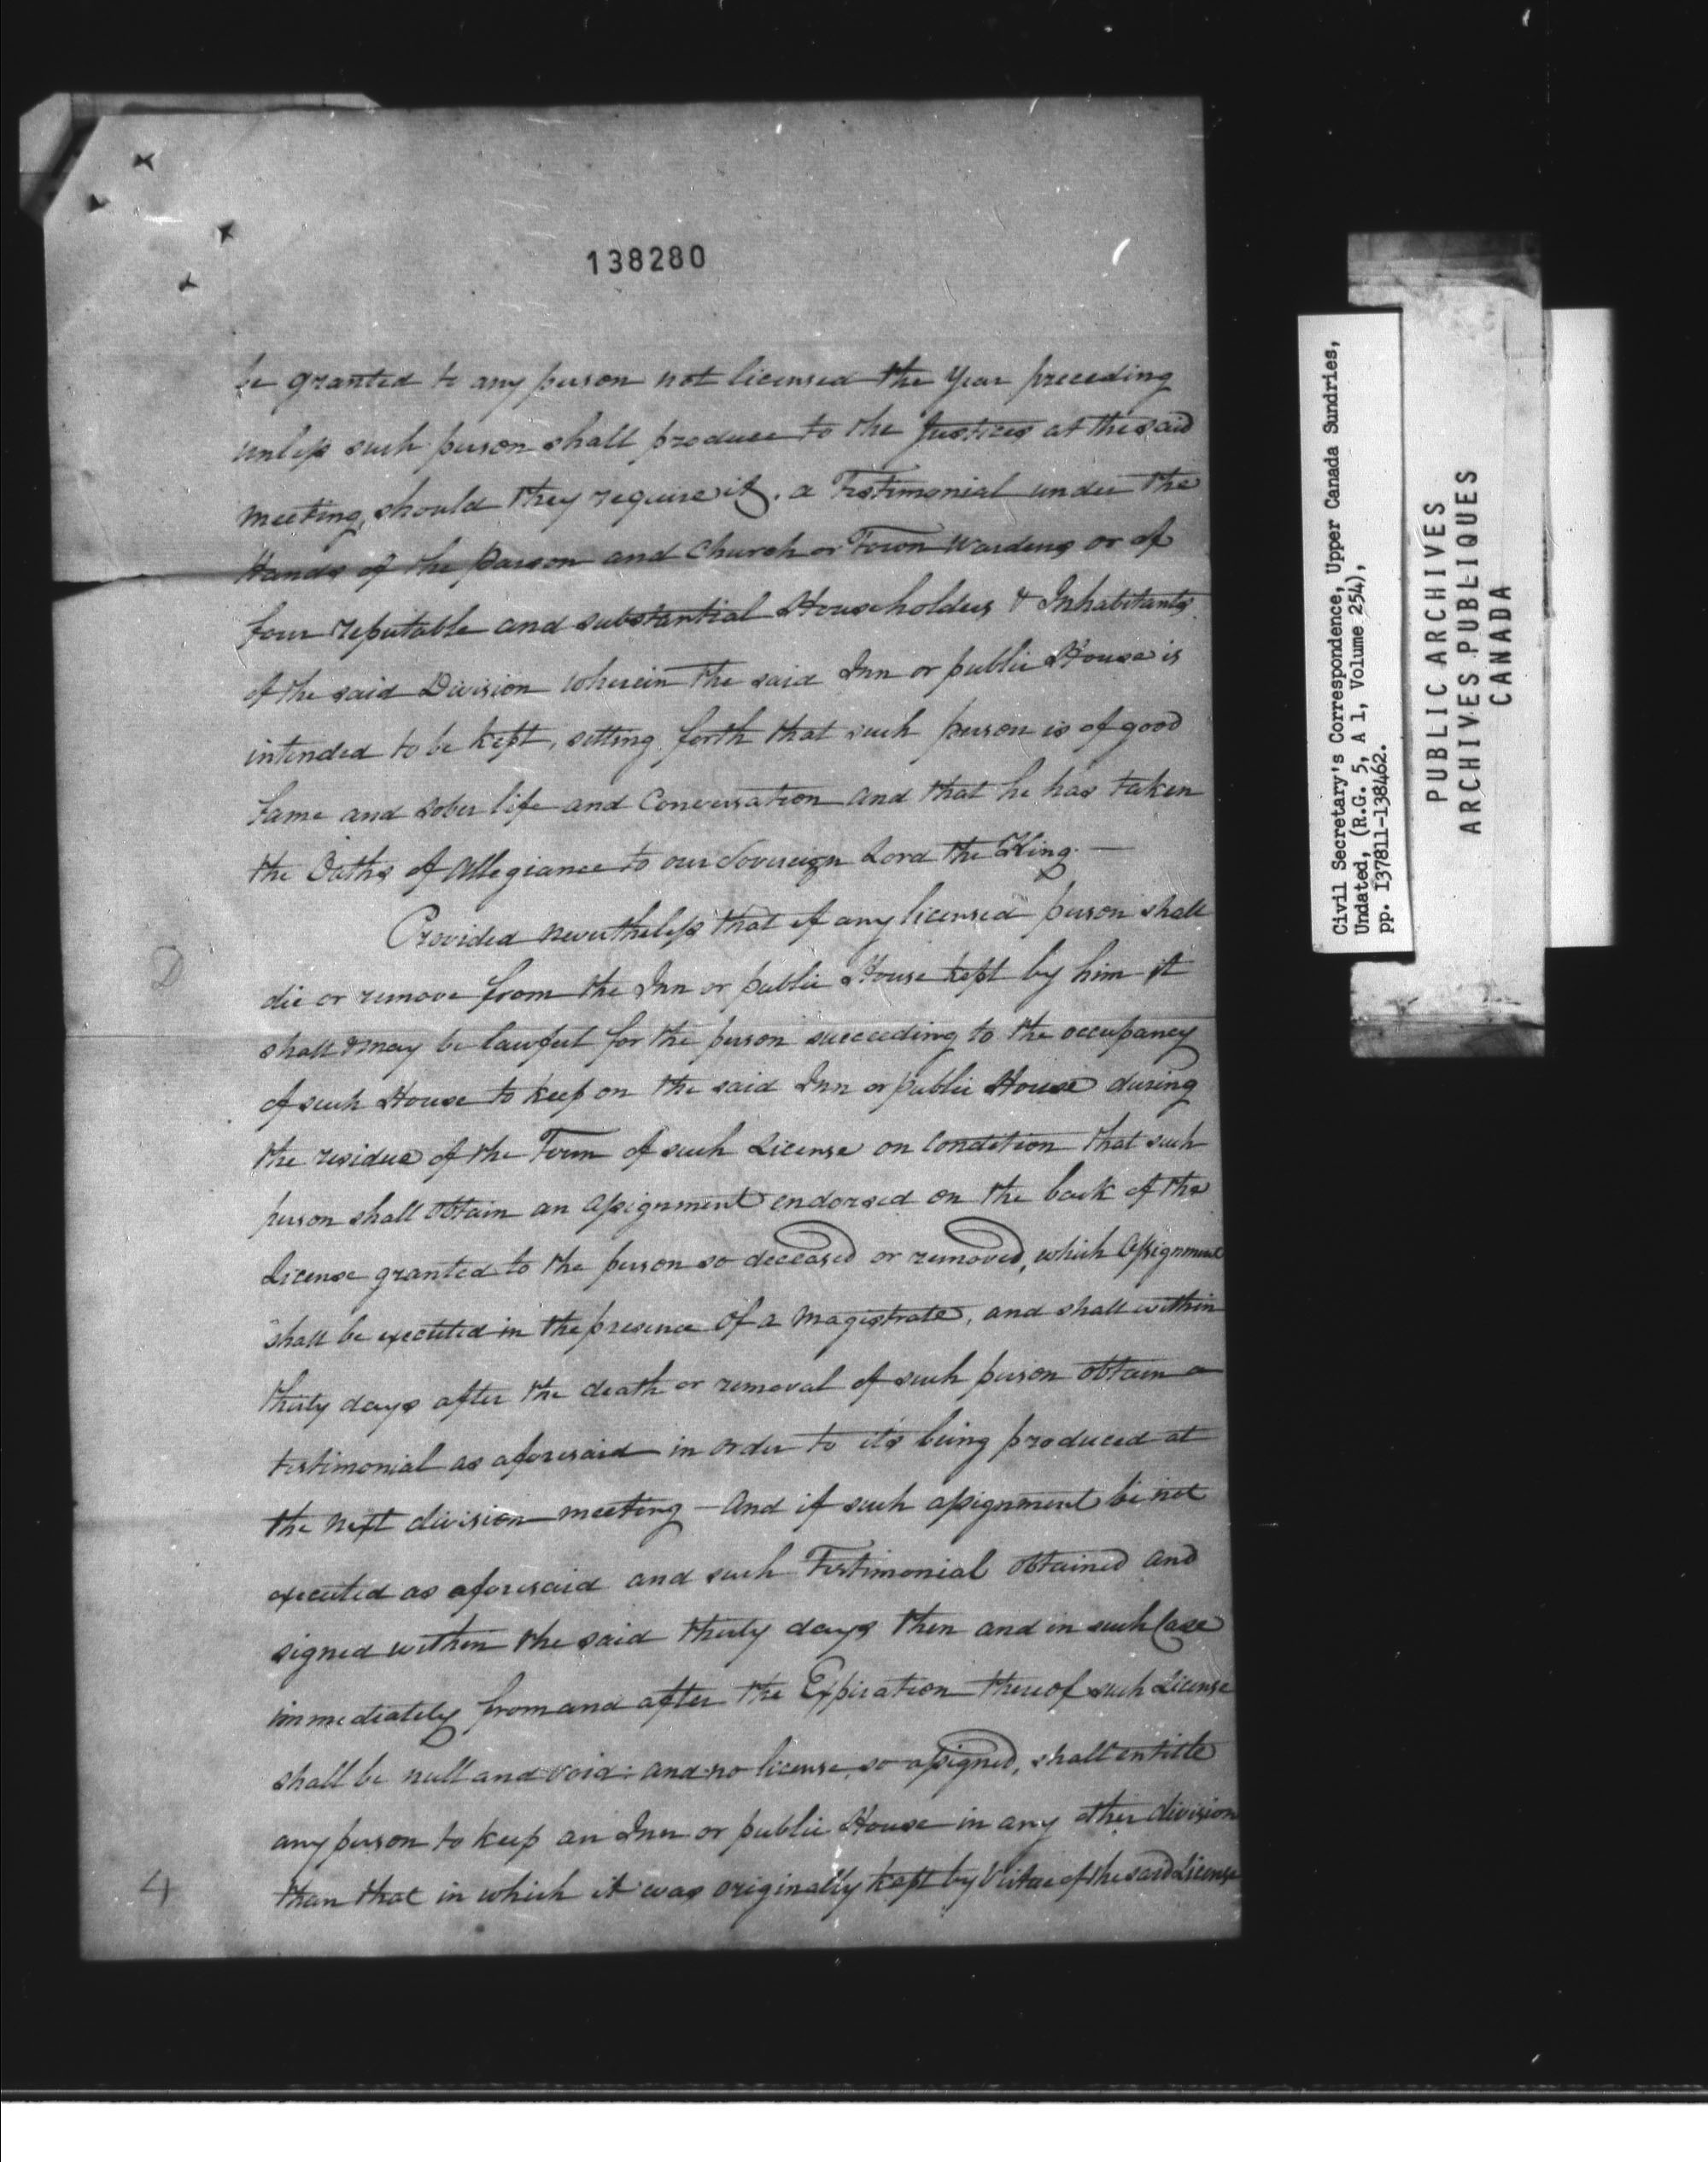 138280
be granted to any person not licensed the Year preceding
unless such person shall produce to the Justices at the said
meeting, should they require it, a Testimonial under the
Hands of the Parson and Church or Town Wardens or of
four reputable and substantial Householders & Inhabitants
of the said Division wherein the said Inn or public House is
intended to be kept, setting forth that such person is of good
fame and sober life and Conversation and that he has taken
the Oaths of Allegiance to our Sovereign Lord the King. —
Provided nevertheless that if any licensed person shall
D
die or remove from the Inn or public House kept by him it
shall & may be lawful for the person succeeding to the occupancy
of such House to keep on the said Inn or public House during
the residue of the Term of such License on Condition that such
person shall obtain an assignment endorsed on the back of the
License granted to the person so deceased or removed, which Assignment
shall be executed in the presence of a Magistrate, and shall within
thirty days after the death or removal of such person obtain a
testimonial as aforesaid in order to it's being produced at
the next division meeting — And if such assignment be not
executed as aforesaid and such Testimonial obtained and
signed within the said thirty days then and in such Case
immediately from and after the Expiration thereof such License
shall be null and void: and no license, so assigned, shall entitle
any person to keep an Inn or public House in any other division
than that in which it was originally kept by Virtue of the said License
4
Civil Secretary's Correspondence, Upper Canada Sundries,
Undated, (R.G. 5, A 1, Volume 254),
pp. 137811-138462.
PUBLIC ARCHIVES
ARCHIVES PUBLIQUES
CANADA